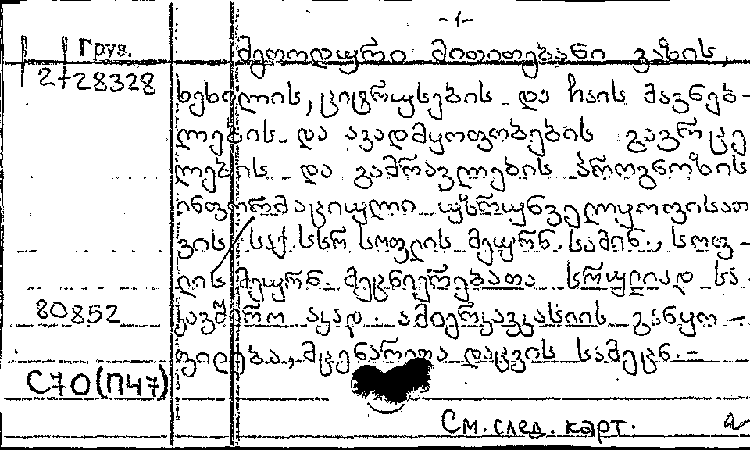 -1-
Груз.
2-28328
მეთოდური მითითებანი ვაზის,
ხეხილის, ციტრუსების და ჩაის მავნებ-
ლების და ავადმყოფობების გავრცე
ლების და გამრავლების პროგნოზის
ინფორმაციული უზრუნველყოფისათ
ვის / საქ. სსრ სოფლის მეურნ. სამინ., სოფ-
ლის მეურნ მეცნიერებათა სრულიად სა-
80852
კავშირო აკად. ამიერკავკასიის განყო-
ფილება, მცენარეთა დაცვის სამეცნ.-
С70(П47)
См. след. карт.